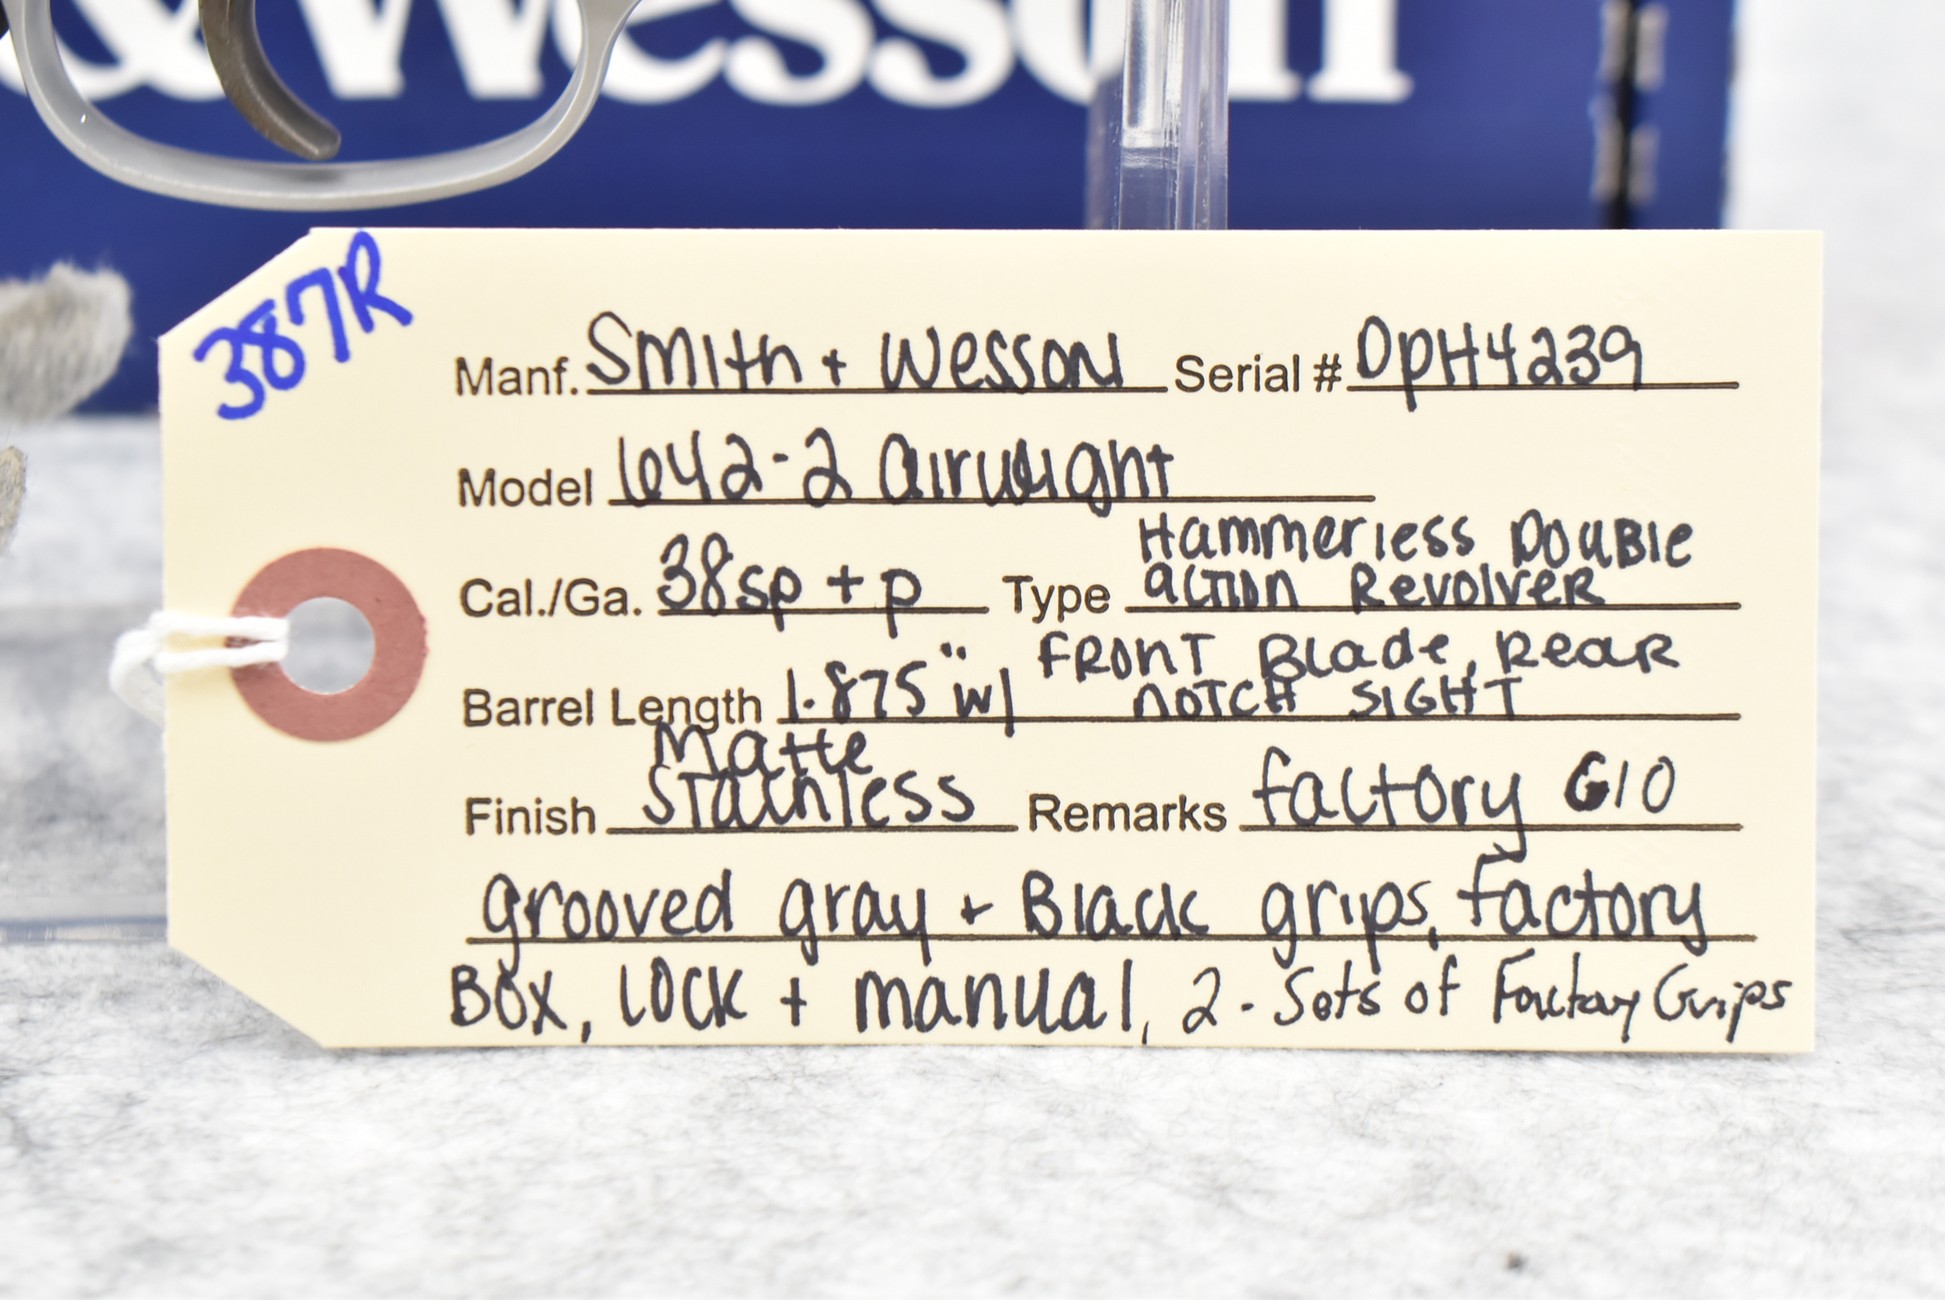 & Wesson
387R
Manf. Smith + Wesson Serial # DPH4239
Model 642-2 airweight
Cal./Ga. 38sp + p Type Hammerless Double
action Revolver
Barrel Length 1.875" w/ Front Blade, Rear
notch sight
Finish Matte
Stainless Remarks factory G10
grooved gray + Black grips, factory
Box, lock + manual, 2 - Sets of Factory Grips